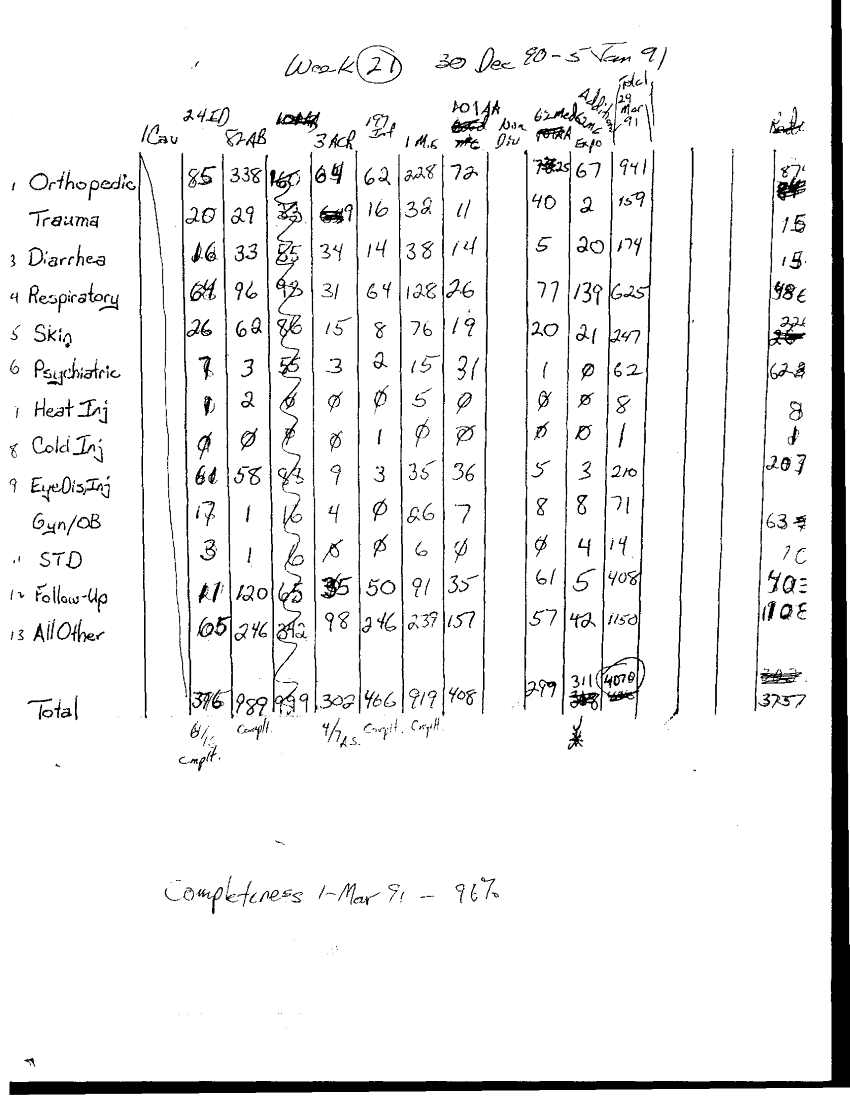 Week 21 30 Dec 90-5 Jan 91
1 Cav 24ID 82AB 3 ACR 197 Inf 1 MG 101AA Non Div 62 Med Addition 62 MG Expo Total 29 Mar 91
1 Orthopedic 85 338 160 64 62 228 72 25 67 941 87
Trauma 20 29 33 9 16 32 11 40 2 159 15
3 Diarrhea 16 33 85 34 14 38 14 5 20 174 15
4 Respiratory 64 96 98 31 64 128 26 77 139 625 486
5 Skin 26 62 86 15 8 76 19 20 21 247 226
6 Psychiatric 7 3 55 3 2 15 31 1 Ø 62 62
7 Heat Inj 1 2 Ø Ø Ø 5 Ø Ø Ø 8 8
8 Cold Inj Ø Ø Ø 1 Ø Ø Ø Ø 1 1
9 EyeDis,Inj 61 58 83 9 3 35 36 5 3 210 207
Gyn/OB 17 1 16 4 Ø 26 7 8 8 71 63
11 STD 3 1 16 Ø Ø 6 Ø Ø 4 14 10
12 Follow-Up 11 120 65 35 50 91 35 61 5 408 403
13 All Other 65 246 242 98 246 239 157 57 42 1150 1108
Total 376 989 999 302 466 919 408 299 311 4070 3757
cmplt. Complt. 4/7 A.S. Complt. Complt.
Completeness 1-Mar 91 - 96%